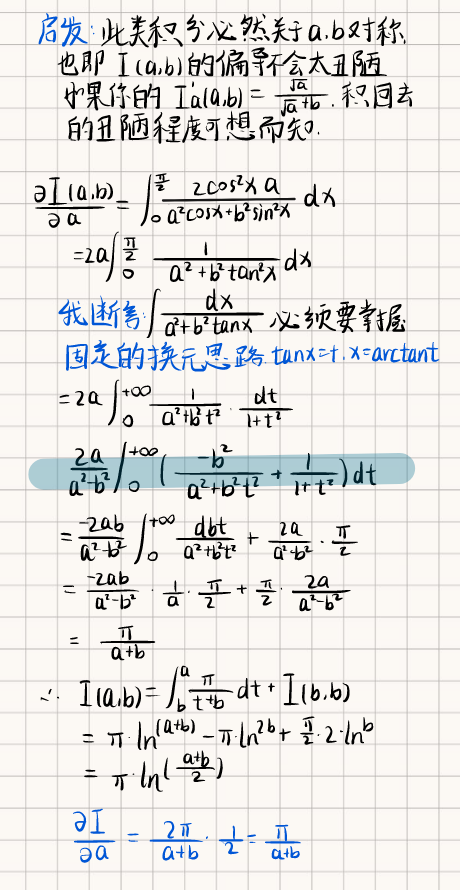 启发:此类积分必然关于a.b对称
也即 I(a,b)的偏导不会太丑陋
如果你的 I'a(a,b) = √a/(√a+b) . 积回去
的丑陋程度可想而知.
∂I(a,b)/∂a = ∫₀^(π/2) 2cos²x a/(a²cosx+b²sin²x) dx
=2a∫₀^(π/2) 1/(a²+b²tan²x) dx
我断言:∫ dx/(a²+b²tanx) 必须要掌握
固定的换元思路.tanx=t.x=arctant
=2a∫₀^(+∞) 1/(a²+b²t²) · dt/(1+t²)
2a/(a²-b²) ∫₀^(+∞) (-b²/(a²+b²t²) + 1/(1+t²)) dt
= -2ab/(a²-b²) ∫₀^(+∞) dbt/(a²+b²t²) + 2a/(a²-b²) · π/2
= -2ab/(a²-b²) · 1/a · π/2 + π/2 · 2a/(a²-b²)
= π/(a+b)
∴ I(a,b) = ∫_b^a π/(t+b) dt + I(b,b)
= π·ln^(a+b) - π·ln^2b + π/2·2·ln^b
= π·ln^((a+b)/2)
∂I/∂a = 2π/(a+b) · 1/2 = π/(a+b)